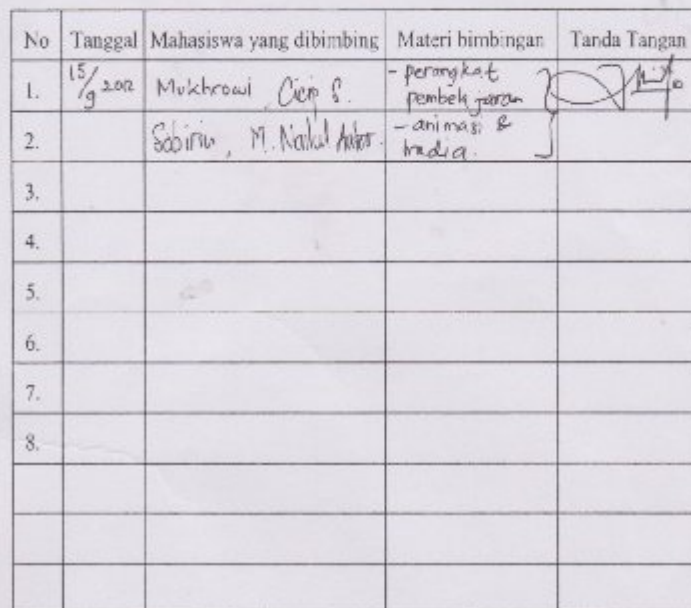 No Tanggal Mahasiswa yang dibimbing Materi bimbingan Tanda Tangan
1. 15/9 2012 Mukhrowi, Cicip S. - perangkat
pembelajaran
2. Sobirin, M. Nailul - animasi &
media.
3.
4.
5.
6.
7.
8.